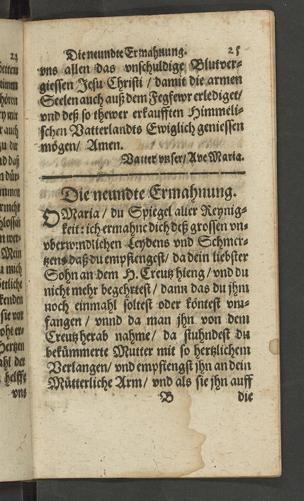 Die neundte Ermahnung. 25
vns allen das vnschuldige Blutver-
giessen Jesu Christi / damit die armen
Seelen auch auß dem Fegfewr erlediget /
vnd deß so thewer erkaufften Himmeli-
schen Vatterlandts Ewiglich geniessen
mögen / Amen.
Vatter vnser / Ave Maria.
Die neundte Ermahnung.
O Maria / du Spiegel aller Reynig-
keit: ich ermahne dich deß grossen vn-
vberwindlichen Leydens vnd Schmer-
tzens daß du empfiengest / da dein liebster
Sohn an dem H. Creutz hieng / vnd du
nicht mehr begehrtest / dann das du jhn
noch einmahl soltest oder köntest vmb-
fangen / vnnd da man jhn von dem
Creutz herab nahme / da stuhndest du
bekümmerte Mutter mit so hertzlichem
Verlangen / vnd empfiengst jhn an dein
Mütterliche Arm / vnd als sie jhn auff
B die